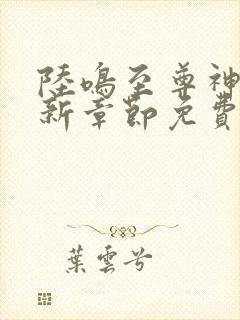 陸鳴至尊神
新章節免費
葉雲兮